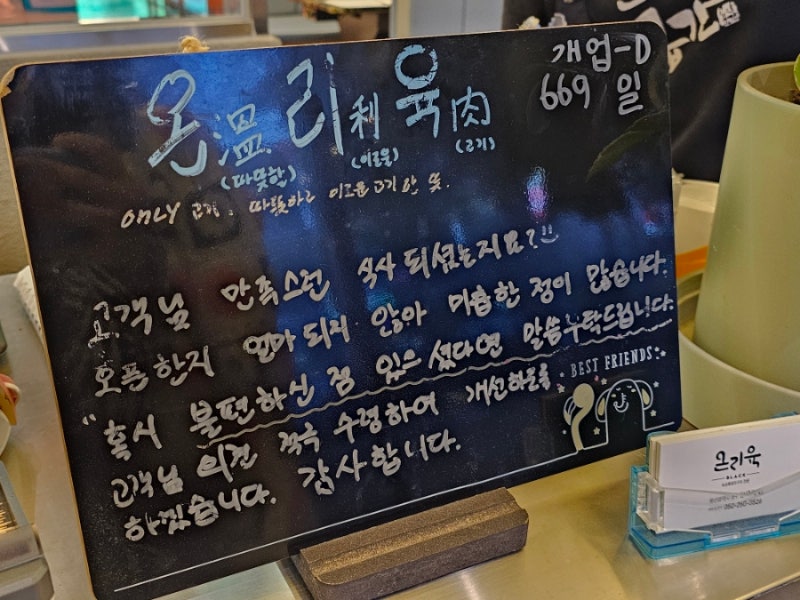 개업-D
669 일
온溫리利육肉
(따뜻한) (이로울) (고기)
ONLY 고기. 따뜻하고 이로운 고기 란 뜻.
고객님 만족스런 식사 되셨는지요?
오픈한지 얼마 되지 않아 미흡한 점이 많습니다.
"혹시 불편하신 점 있으셨다면 말씀부탁드립니다.
고객님 의견 적극 수렴하여 개선하도록
하겠습니다. 감사합니다.
BEST FRIENDS
온리육